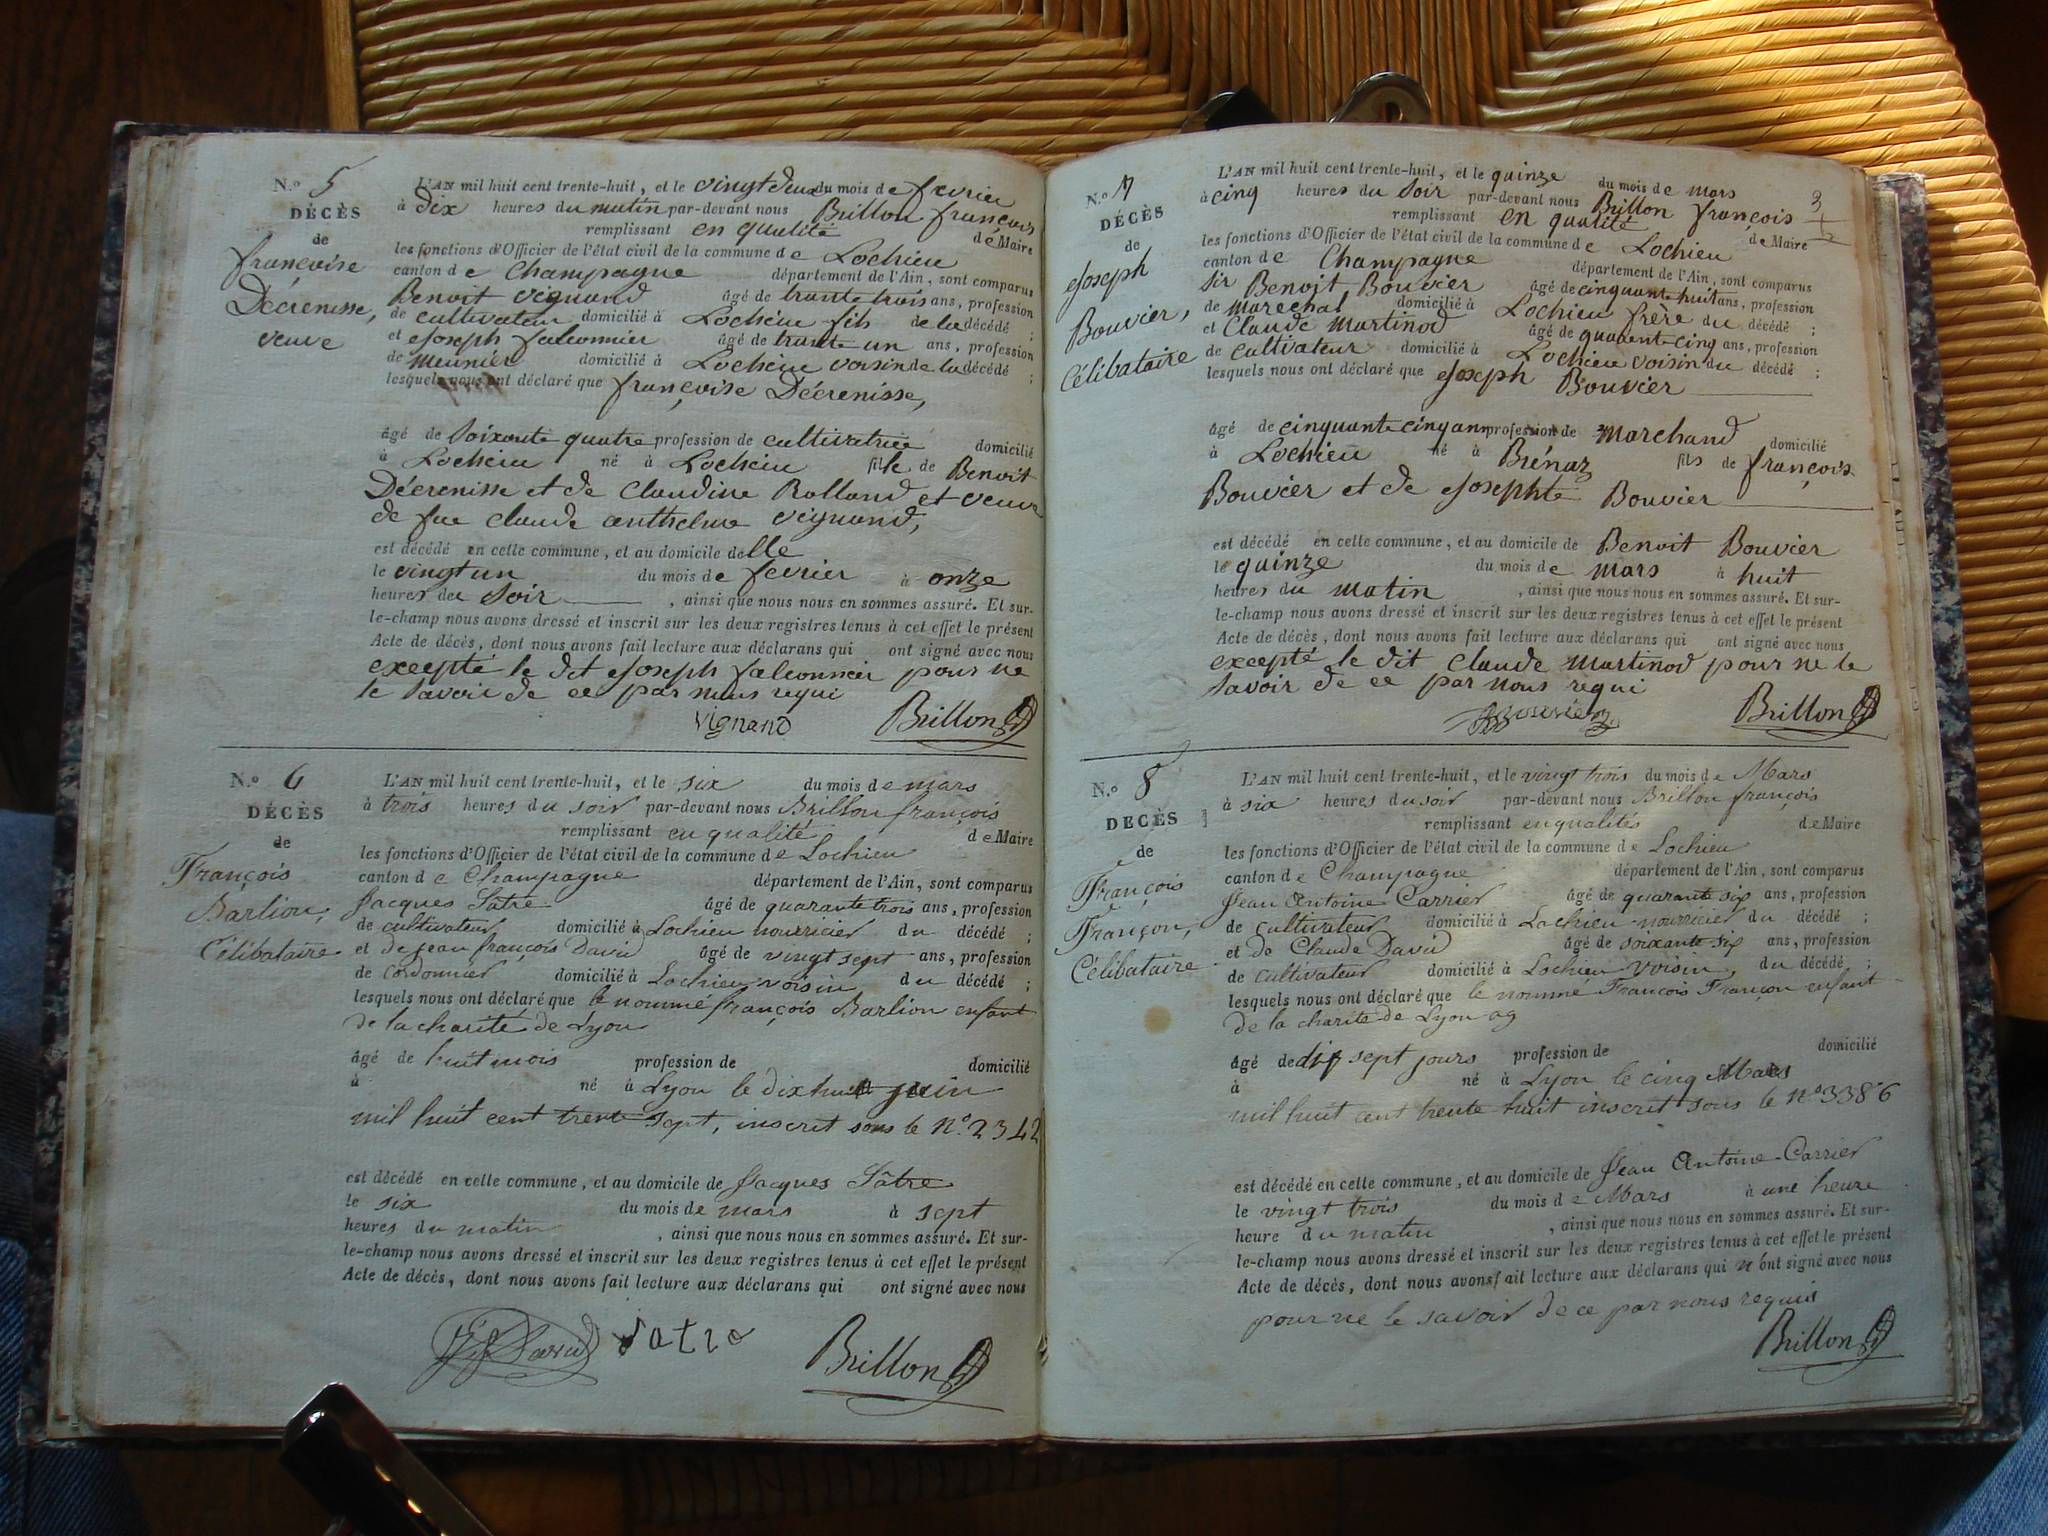 N.° 5
DÉCÈS
de
françoise
Décrenisse,
veuve
L'AN mil huit cent trente-huit, et le vingt deux du mois de fevrier
à dix heures du matin par-devant nous Brillon françois
remplissant en qualité de Maire
les fonctions d'Officier de l'état civil de la commune de Lochieu
canton de Champagne département de l'Ain, sont comparus
Benoit vignand âgé de trante trois ans, profession
de cultivateur domicilié à Lochieu fils de la décédé ;
et Joseph falconnier âgé de trante un ans, profession
de meunier domicilié à Lochieu voisin de la décédé ;
lesquels nous ont déclaré que françoise Décrenisse,
âgé de soixante quatre profession de cultivatrice domicilié
à Lochieu né à Lochieu fille de Benoit
Décrenisse et de Claudine Rolland et veuve
de fue claude anthelme vignand,
est décédé en cette commune, et au domicile delle
le vingt un du mois de fevrier à onze
heures du soir , ainsi que nous nous en sommes assuré. Et sur-
le-champ nous avons dressé et inscrit sur les deux registres tenus à cet effet le présent
Acte de décès, dont nous avons fait lecture aux déclarans qui ont signé avec nous
excepté le dit Joseph falconnier pour ne
le savoir de ce par nous requi
vignand Brillon
N.° 6
DÉCÈS
de
François
Barlion,
Célibataire
L'AN mil huit cent trente-huit, et le six du mois de mars
à trois heures du soir par-devant nous Brillon françois
remplissant en qualité de Maire
les fonctions d'Officier de l'état civil de la commune de Lochieu
canton de Champagne département de l'Ain, sont comparus
Jacques Sâtre âgé de quarante trois ans, profession
de cultivateur domicilié à Lochieu nourricier du décédé ;
et de jean françois David âgé de vingt sept ans, profession
de cordonnier domicilié à Lochieu voisin du décédé ;
lesquels nous ont déclaré que le nommé françois Barlion enfant
de la charité de Lyon
âgé de huit mois profession de domicilié
à né à Lyon le dix huit juin
mil huit cent trente sept, inscrit sous le N.° 2342
est décédé en cette commune, et au domicile de Jacques Sâtre
le six du mois de mars à sept
heures du matin , ainsi que nous nous en sommes assuré. Et sur-
le-champ nous avons dressé et inscrit sur les deux registres tenus à cet effet le présent
Acte de décès, dont nous avons fait lecture aux déclarans qui ont signé avec nous
David satre Brillon
N.° 7
DÉCÈS
de
Joseph
Bouvier,
Célibataire
L'AN mil huit cent trente-huit, et le quinze du mois de mars
à cinq heures du soir par-devant nous Brillon françois
remplissant en qualité de Maire
les fonctions d'Officier de l'état civil de la commune de Lochieu
canton de Champagne département de l'Ain, sont comparus
sir Benoit Bouvier âgé de cinquante huit ans, profession
de marechal domicilié à Lochieu frere du décédé ;
et Claude martinod âgé de quarent-cinq ans, profession
de cultivateur domicilié à Lochieu voisin du décédé ;
lesquels nous ont déclaré que Joseph Bouvier
âgé de cinquante cinq ans profession de marchand domicilié
à Lochieu né à Brénaz fils de françois
Bouvier et de Josephte Bouvier
est décédé en cette commune, et au domicile de Benoit Bouvier
le quinze du mois de mars à huit
heures du matin , ainsi que nous nous en sommes assuré. Et sur-
le-champ nous avons dressé et inscrit sur les deux registres tenus à cet effet le présent
Acte de décès, dont nous avons fait lecture aux déclarans qui ont signé avec nous
excepté le dit Claude martinod pour ne le
savoir de ce par nous requi
Bouvier Brillon
N.° 8
DÉCÈS
de
François
Françon,
Célibataire
L'AN mil huit cent trente-huit, et le vingt trois du mois de Mars
à six heures du soir par-devant nous Brillon françois
remplissant en qualités de Maire
les fonctions d'Officier de l'état civil de la commune de Lochieu
canton de Champagne département de l'Ain, sont comparus
Jean Antoine Carrier âgé de quarante six ans, profession
de cultivateur domicilié à Lochieu nourricier du décédé ;
et de Claude David âgé de soixante six ans, profession
de cultivateur domicilié à Lochieu voisin, du décédé ;
lesquels nous ont déclaré que le nommé François Françon enfant
de la charité de Lyon ag
âgé de dix sept jours profession de domicilié
à né à Lyon le cinq Mars
mil huit cent trente huit inscrit sous le N° 3386
est décédé en cette commune, et au domicile de Jean Antoine Carrier
le vingt trois du mois de Mars à une heure
heure du matin , ainsi que nous nous en sommes assuré. Et sur-
le-champ nous avons dressé et inscrit sur les deux registres tenus à cet effet le présent
Acte de décès, dont nous avons fait lecture aux déclarans qui n'ont signé avec nous
pour ne le savoir de ce par nous requis
Brillon